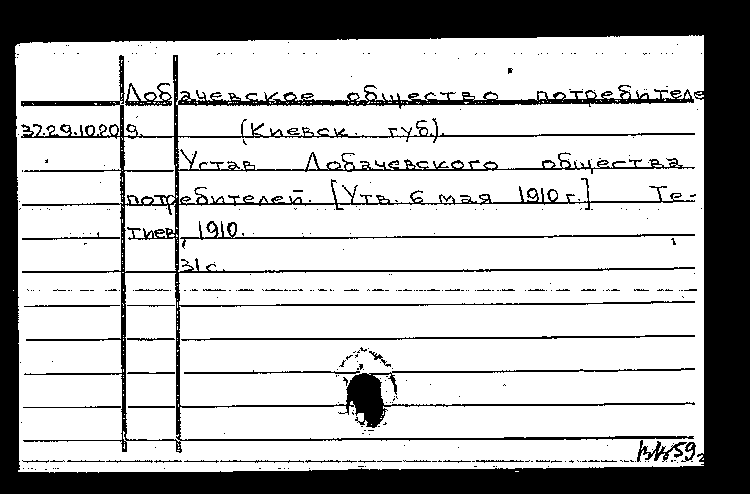 Лобачевское общество потребителе
37.29.1020 9. (Киевск. губ).
Устав Лобачевского общества
потребителей. [Утв. 6 мая 1910 г.] Те-
тиев, 1910.
31 с.